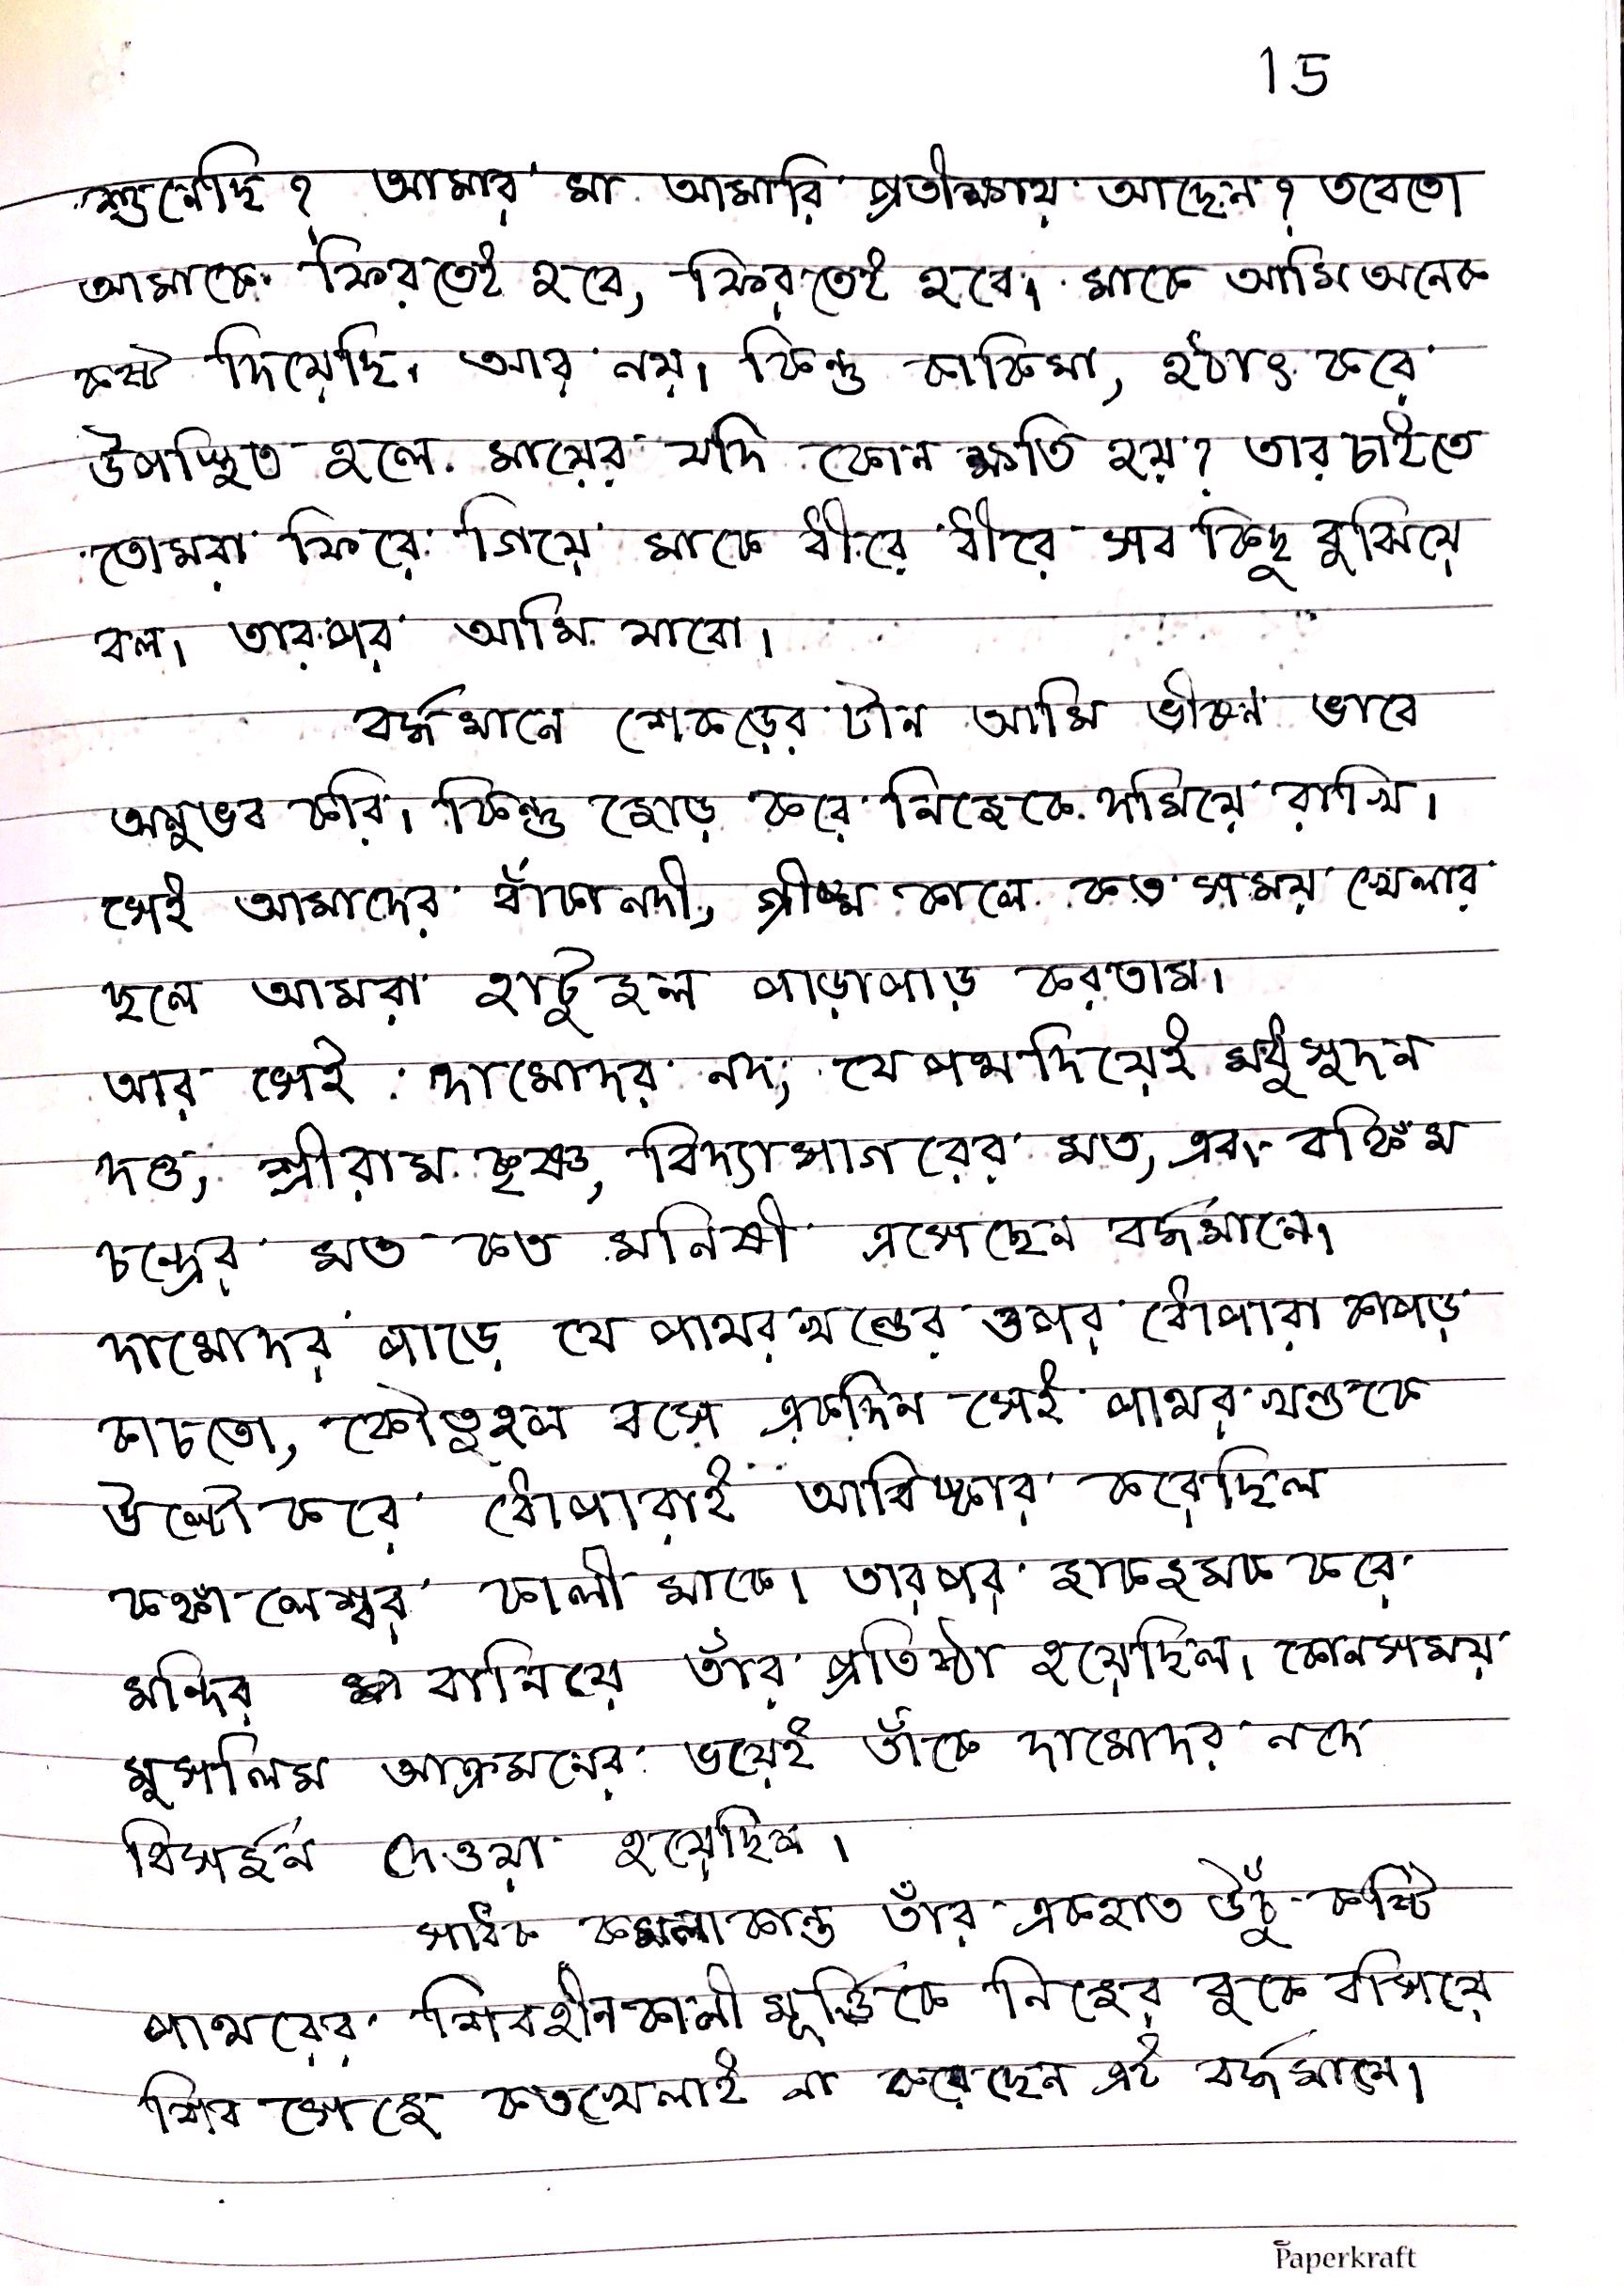 15
শুনেছি? আমার মা আমারি প্রতীক্ষায় আছেন? তবেতো
আমাকে ফিরতেই হবে, ফিরতেই হবে। মাকে আমি অনেক
কষ্ট দিয়েছি। আর নয়। কিন্তু কাকিমা, হঠাৎ করে
উপস্থিত হলে মায়ের যদি কোন ক্ষতি হয়? তার চাইতে
তোমরা ফিরে গিয়ে মাকে ধীরে ধীরে সব কিছু বুঝিয়ে
বল। তারপর আমি যাবো।
বর্দ্ধমানে শেকড়ের টান আমি ভীষন ভাবে
অনুভব করি। কিন্তু জোড় করে নিজেকে দমিয়ে রাখি।
সেই আমাদের বাঁকানদী, গ্রীষ্ম কালে কত সময় খেলার
ছলে আমরা হাটুজল পাড়াপাড় করতাম।
আর সেই দামোদর নদ, যে পথ দিয়েই মধুসুদন
দত্ত, শ্রীরাম কৃষ্ণ, বিদ্যাসাগরের মত, এবং বঙ্কিম
চন্দ্রের মত কত মনিষী এসেছেন বর্দ্ধমানে।
দামোদর পাড়ে যে পাথর খন্ডের ওপর ধোঁপারা কাপড়
কাচতো, কৌতুহল বসে একদিন সেই পাথর খন্ডকে
উল্টো করে ধোঁপারাই আবিষ্কার করেছিল
কঙ্কালেশ্বর কালী মাকে। তারপর জাকজমক করে
মন্দির বানিয়ে তাঁর প্রতিষ্ঠা হয়েছিল। কোনসময়
মুসলিম আক্রমনের ভয়েই তাঁকে দামোদর নদে
বিসর্জন দেওয়া হয়েছিল।
সাধক কমলাকান্ত তাঁর একহাত উঁচু কষ্টি
পাথরের শিবহীন কালী মূর্ত্তিকে নিজের বুকে বসিয়ে
শিব সেজে কতখেলাই না করেছেন এই বর্দ্ধমানে।
Paperkraft